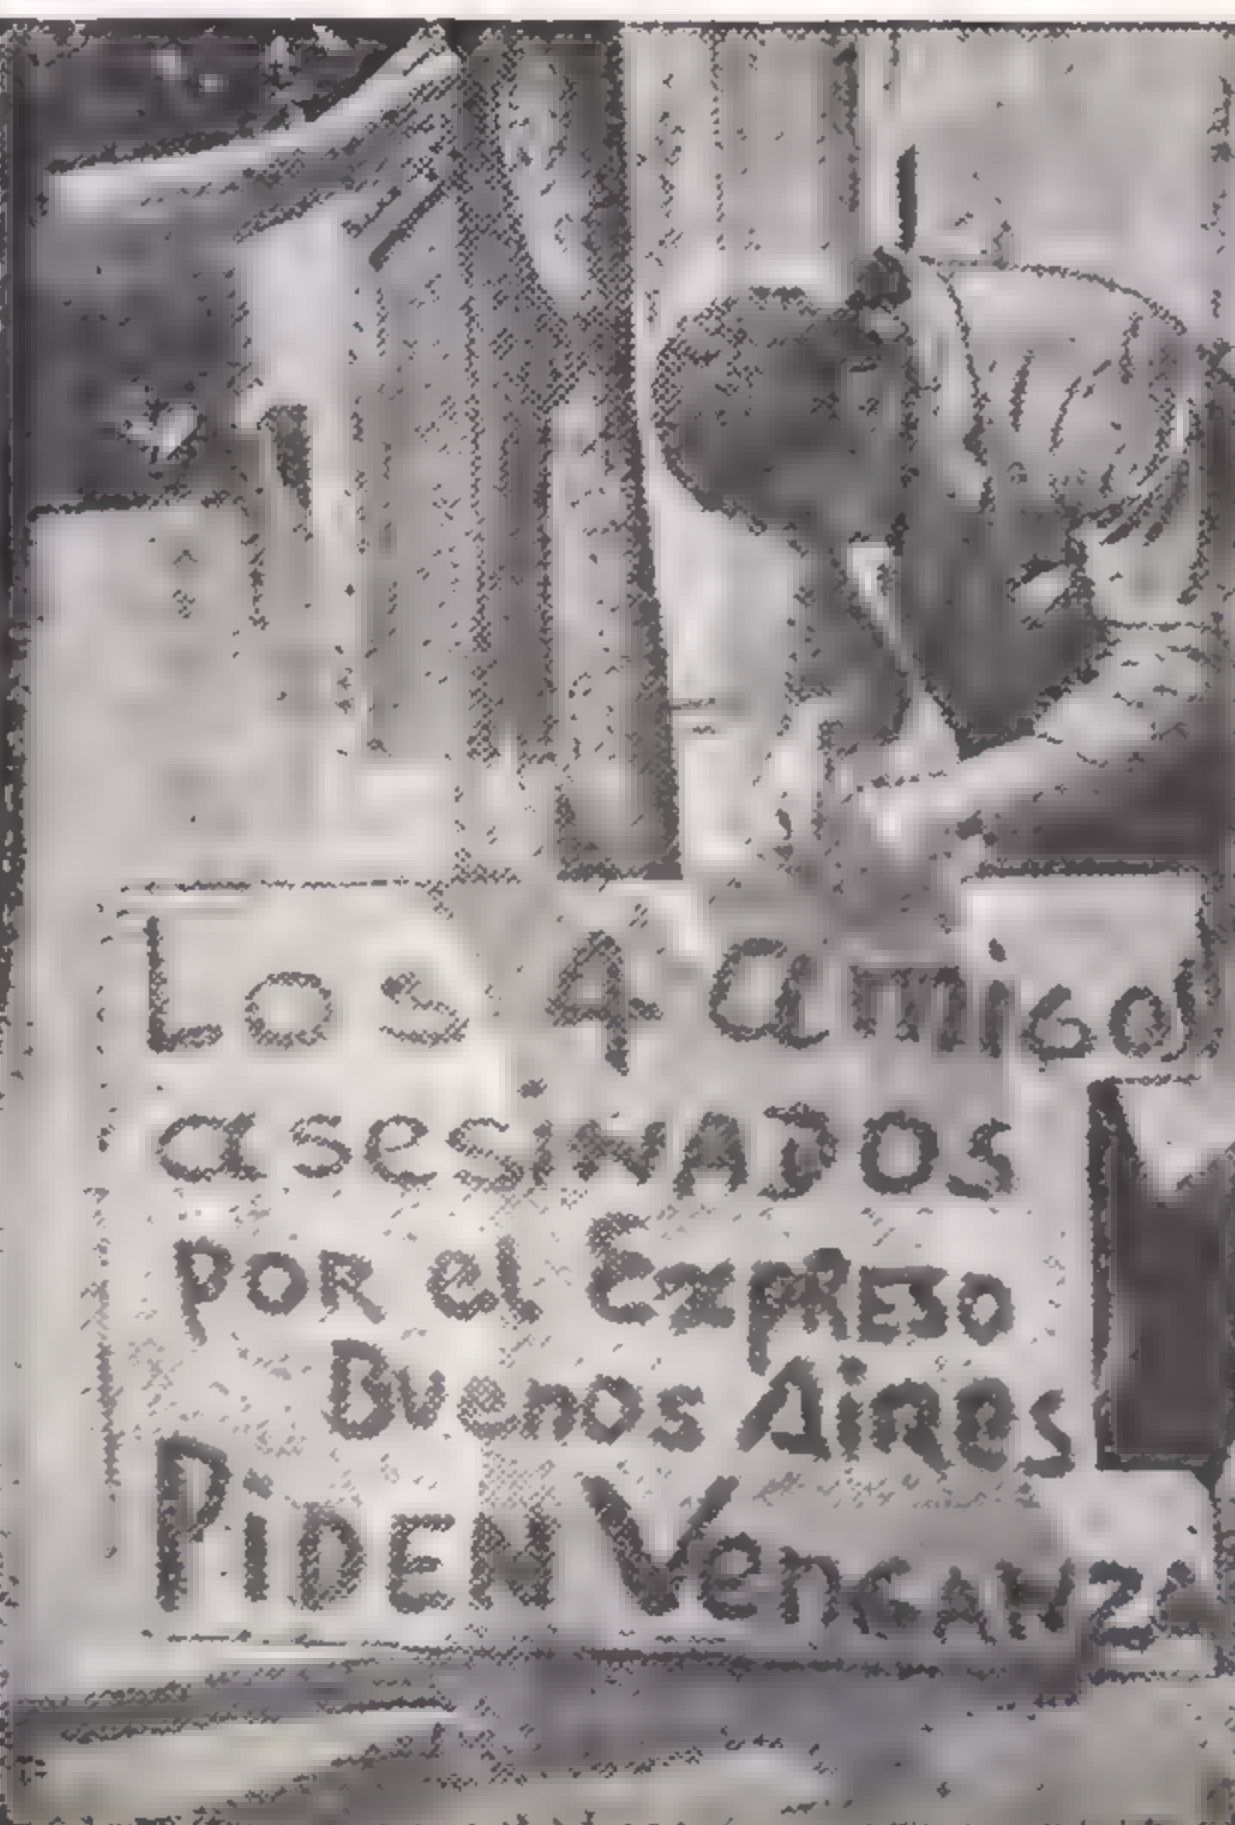 Los 4 amigos
asesinados
por el Expreso
Buenos Aires
Piden Venganza